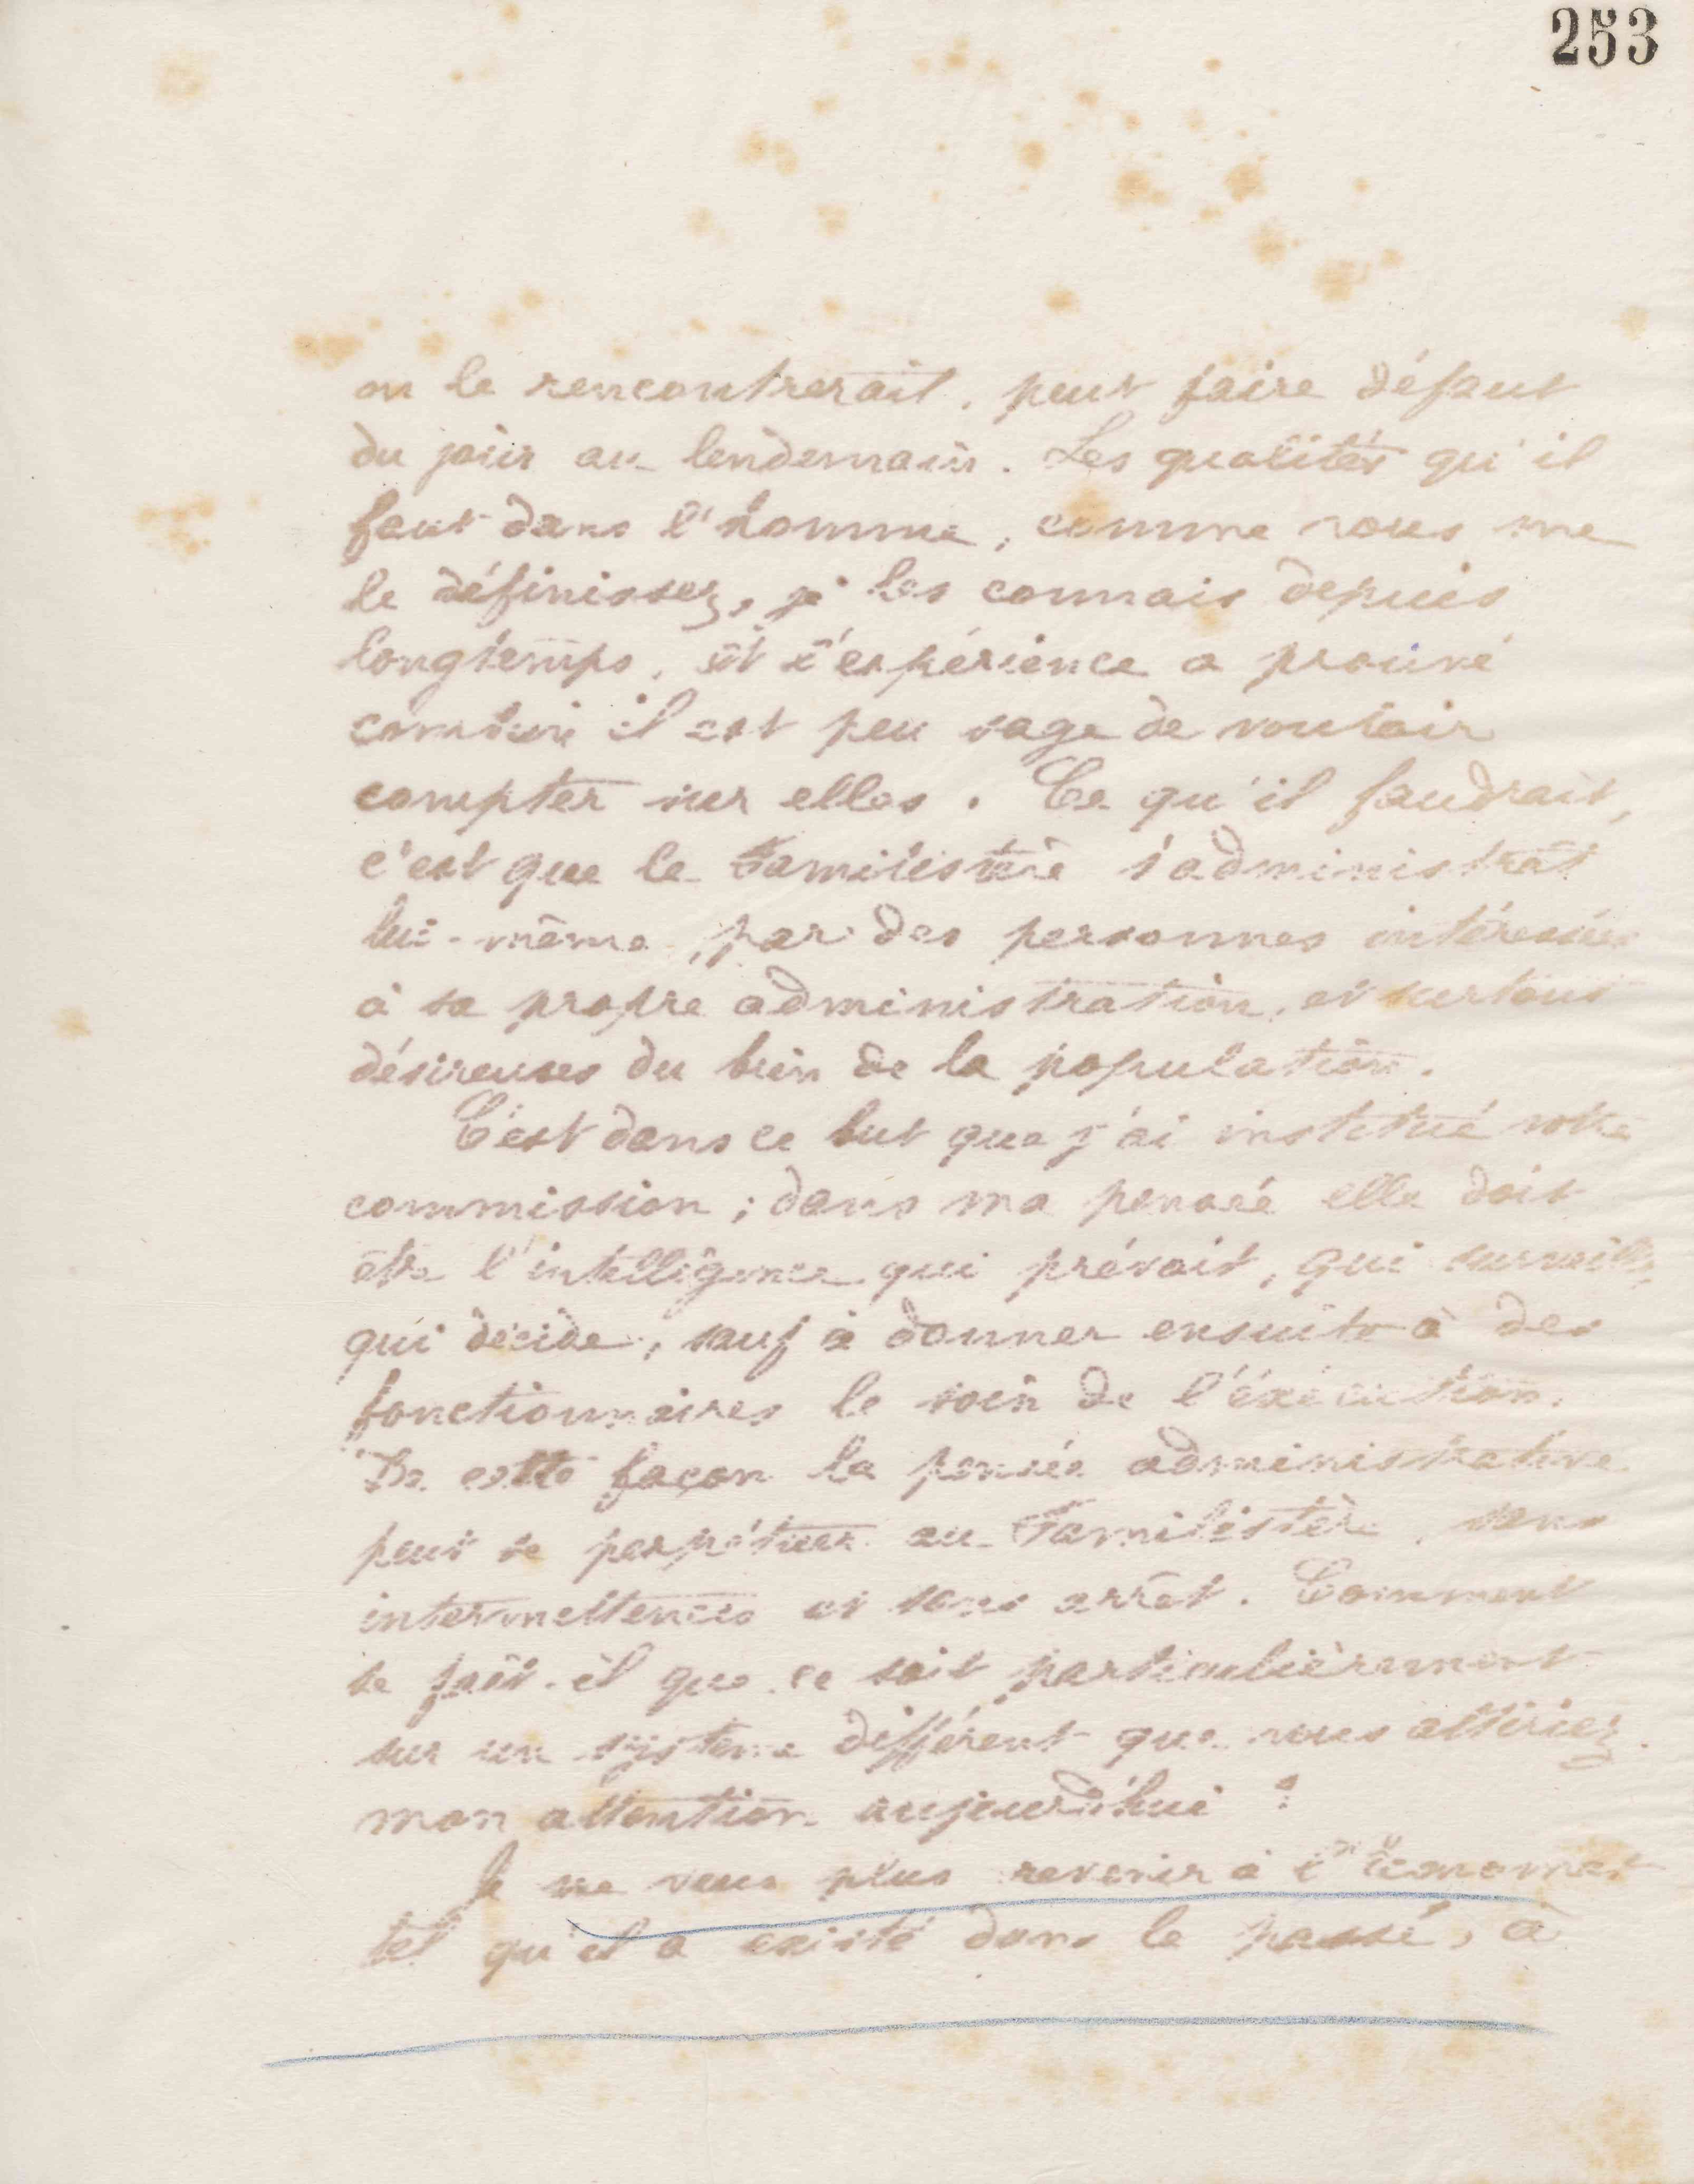 253
on le rencontrerait, peut faire défaut
du jour au lendemain. Les qualités qu'il
faut dans l'homme, comme vous me
le définissez, je les connais depuis
longtemps, et l'expérience a prouvé
combien il est peu sage de vouloir
compter sur elles. Ce qu'il faudrait,
c'est que le Familistère s'administrât
lui-même, par des personnes intéressées
à sa propre administration, et surtout
désireuses du bien de la population.
C'est dans ce but que j'ai institué votre
commission ; dans ma pensée elle doit
être l'intelligence qui prévoit, qui surveille,
qui décide, sauf à donner ensuite à des
fonctionnaires le soin de l'exécution.
De cette façon la pensée administrative
peut se perpétuer au Familistère, sans
intermittences et sans arrêt. Comment
se fait-il que ce soit particulièrement
sur un système différent que vous attiriez
mon attention aujourd'hui ?
Je ne veux plus revenir à l'économat
tel qu'il a existé dans le passé, à